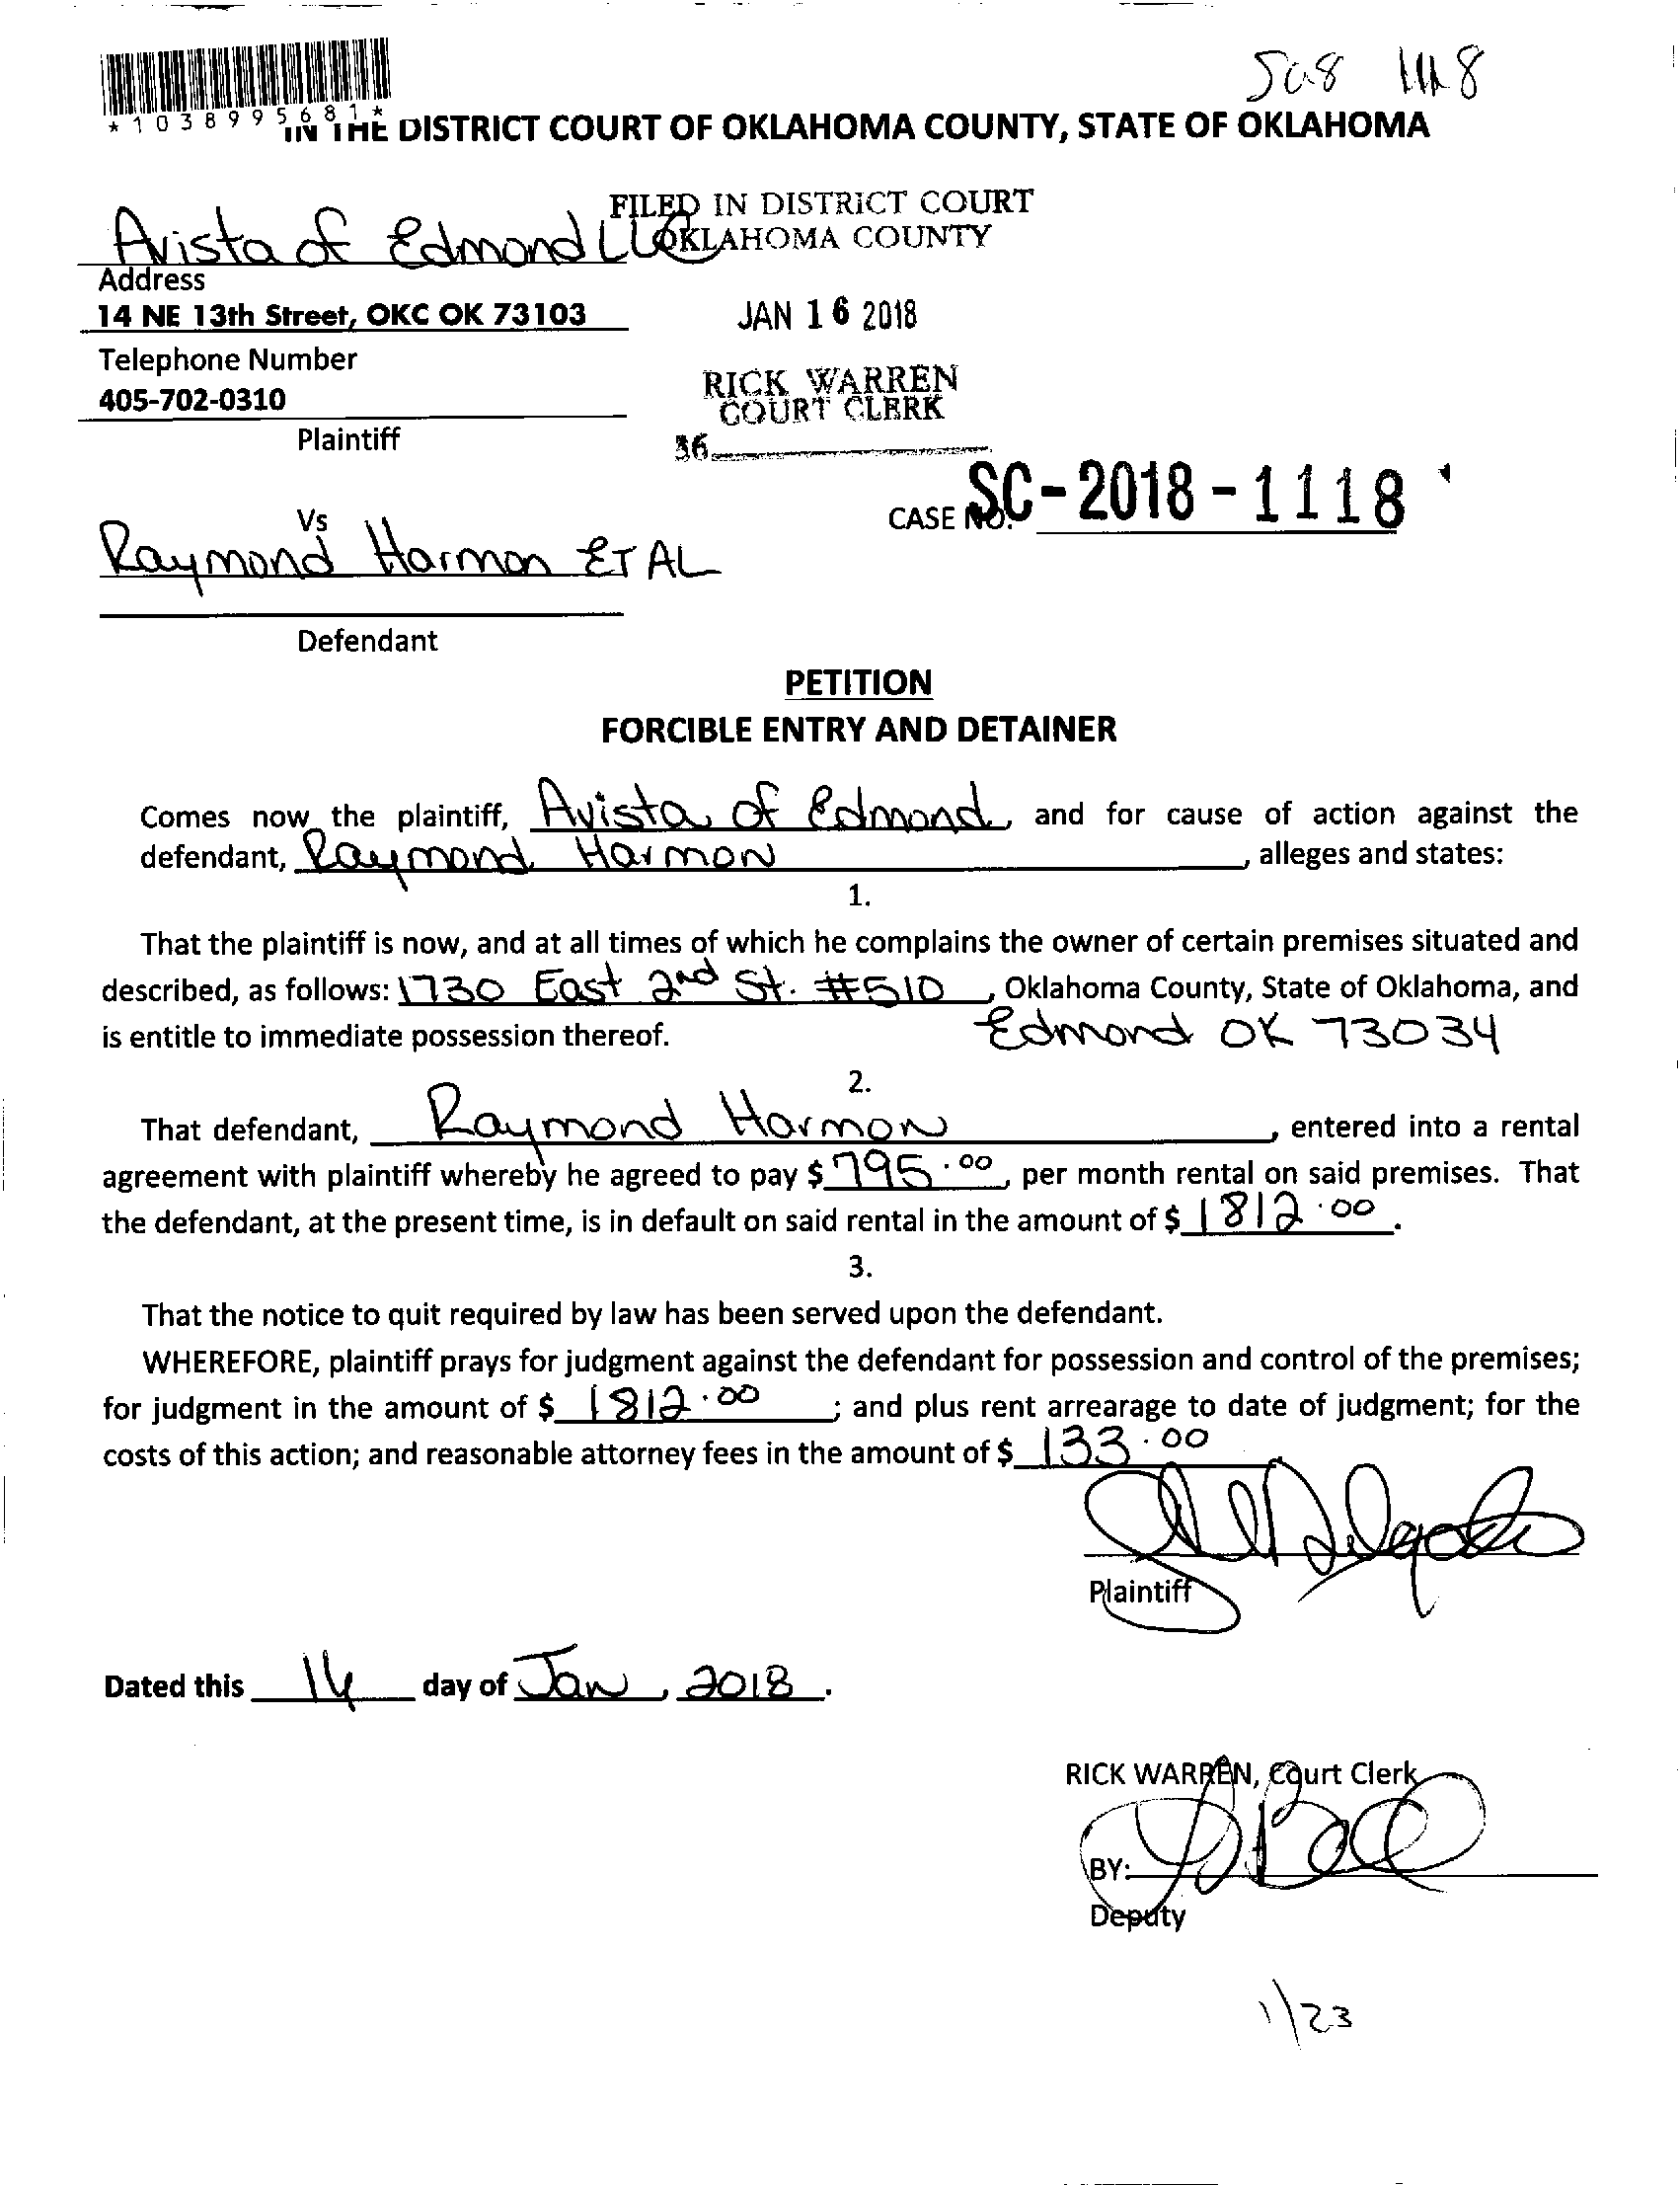 *1038995681*
IN THE DISTRICT COURT OF OKLAHOMA COUNTY, STATE OF OKLAHOMA
FILED IN DISTRICT COURT
OKLAHOMA COUNTY
Avista of Edmond LLC
Address
14 NE 13th Street, OKC OK 73103
JAN 16 2018
Telephone Number
405-702-0310
RICK WARREN
COURT CLERK
Plaintiff
36
CASE NO. SC-2018-1118
Vs
Raymond Harmon ET AL
Defendant
PETITION
FORCIBLE ENTRY AND DETAINER
Comes now the plaintiff, Avista of Edmond, and for cause of action against the
defendant, Raymond Harmon, alleges and states:
1.
That the plaintiff is now, and at all times of which he complains the owner of certain premises situated and
described, as follows: 1730 East 2nd St. #510, Oklahoma County, State of Oklahoma, and
is entitle to immediate possession thereof. Edmond OK 73034
2.
That defendant, Raymond Harmon, entered into a rental
agreement with plaintiff whereby he agreed to pay $ 795.00, per month rental on said premises. That
the defendant, at the present time, is in default on said rental in the amount of $ 1812.00.
3.
That the notice to quit required by law has been served upon the defendant.
WHEREFORE, plaintiff prays for judgment against the defendant for possession and control of the premises;
for judgment in the amount of $ 1812.00; and plus rent arrearage to date of judgment; for the
costs of this action; and reasonable attorney fees in the amount of $ 133.00
Plaintiff
Dated this day of Jan, 2018.
RICK WARREN, Court Clerk
BY:
Deputy
1/23